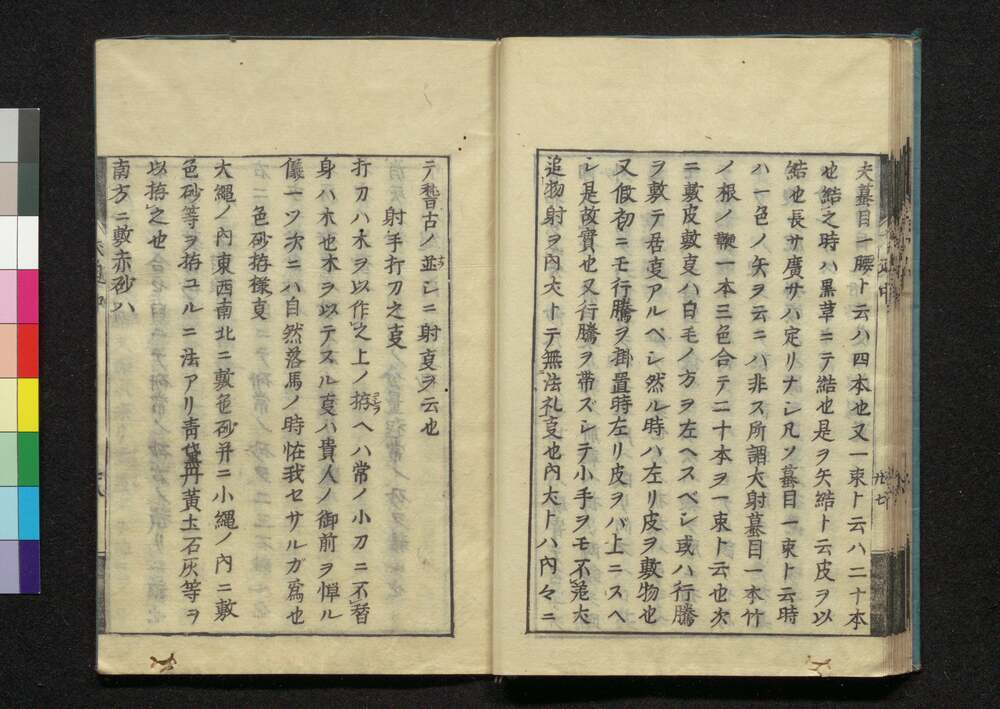 夫蟇目一腰ト云ハ四本也又一束ト云ハ二十本
也結之時ハ黒草ニテ結也是ヲ矢結ト云皮ヲ以
結也長サ廣サハ定リナシ凡ソ蟇目一束ト云時
ハ一色ノ矢ヲ云ニハ非ス所謂大射蟇目一本竹
ノ根ノ鞭一本三色合テ二十本ヲ一束ト云也次
ニ敷皮敷㕝ハ白モノ方ヲ左ヘスベシ或ハ行騰
ヲ敷テ居㕝アルベシ然ル時ハ左リ皮ヲ敷物也
又假初ニモ行騰ヲ掛置時左リ皮ヲバ上ニスヘ
シ是故實也又行騰ヲ帯ズシテ小手ヲモ不差犬
追物射ヲ内犬トテ無法礼㕝也内犬トハ内々ニ
廿七
テ誓古ノ並シニ射㕝ヲ云也
射手打刀之㕝
打刀ハ木ヲ以作之上ノ拵ヘハ常ノ小刀ニ不替
身ハ木也木ヲ以テスル㕝ハ貴人ノ御前ヲ憚ル
儀一ツ次ニハ自然落馬ノ時怔我セサルガ爲也
色砂拵様㕝
大繩ノ内東西南北ニ敷色砂并ニ小繩ノ内ニ敷
色砂等ヲ拵ユルニ法アリ青黛丹黄土石灰等ヲ
以拵之也
南方ニ敷赤砂ハ